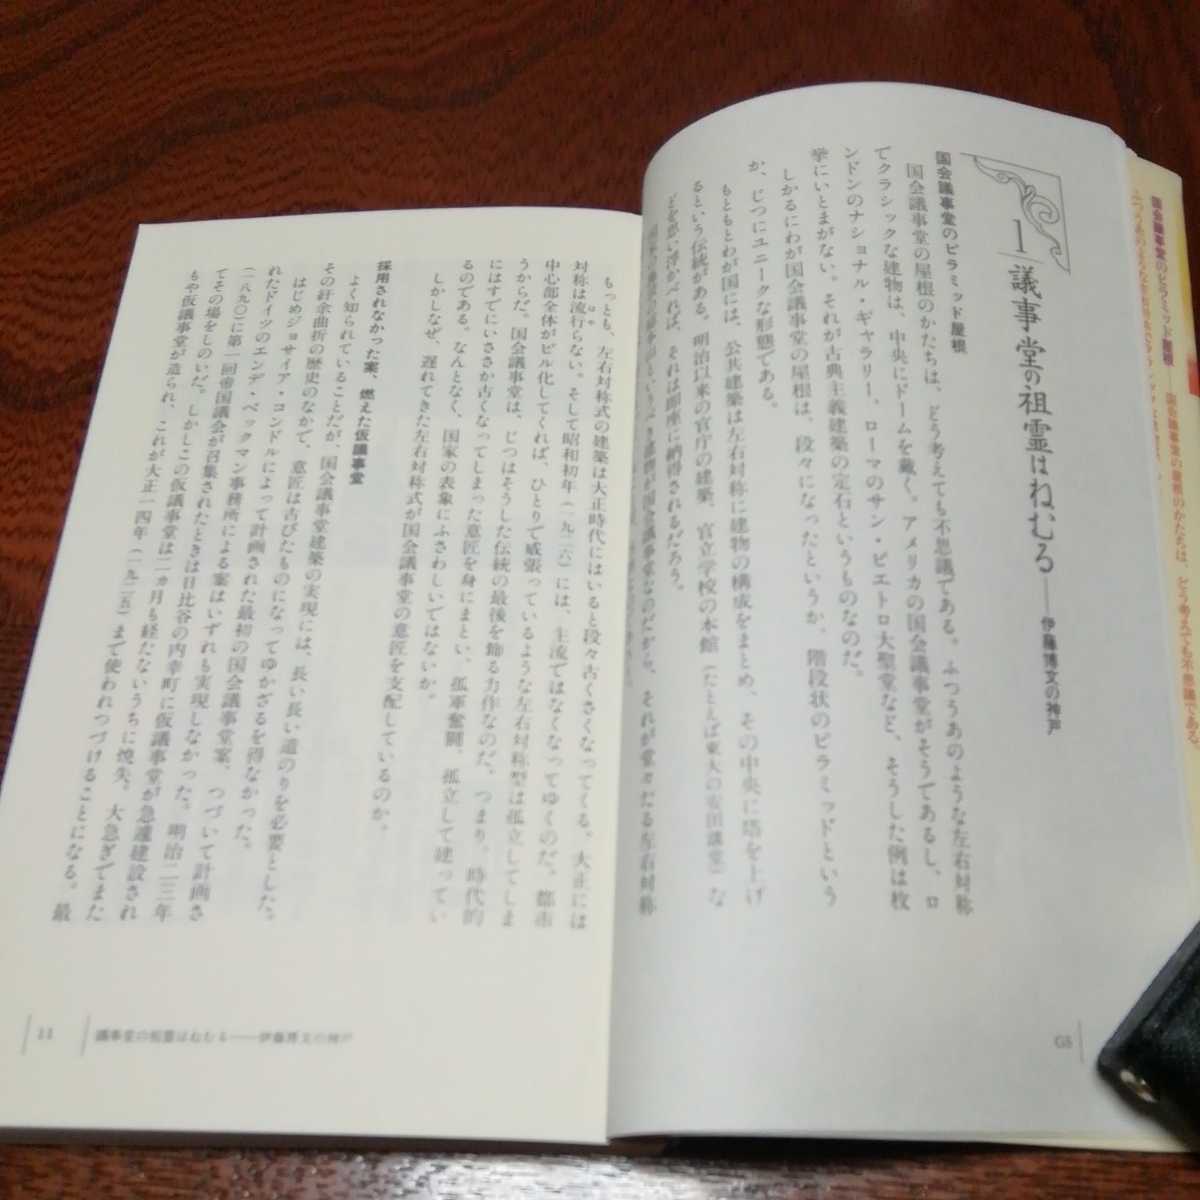 1 議事堂の祖霊はねむる──伊藤博文の神戸
国会議事堂のピラミッド屋根
国会議事堂の屋根のかたちは、どう考えても不思議である。ふつうあのような左右対称
でクラシックな建物は、中央にドームを戴く。アメリカの国会議事堂がそうであるし、ロ
ンドンのナショナル・ギャラリー、ローマのサン・ピエトロ大聖堂など、そうした例は枚
挙にいとまがない。それが古典主義建築の定石というものなのだ。
しかるにわが国会議事堂の屋根は、段々になったというか、階段状のピラミッドという
か、じつにユニークな形態である。
もともとわが国には、公共建築は左右対称に建物の構成をまとめ、その中央に塔を上げ
るという伝統がある。明治以来の官庁の建築、官立学校の本館（たとえば東大の安田講堂）な
どを思い浮かべれば、それは即座に納得されるだろう。
建物が国会議事堂なのだから、それが堂々たる左右対称
もっとも、左右対称式の建築は大正時代にはいると段々古くさくなってくる。大正には
対称は流行らない。そして昭和初年（一九二六）には、主流ではなくなってゆくのだ。都市
中心部全体がビル化してくれば、ひとりで威張っているような左右対称型は孤立してしま
うからだ。国会議事堂は、じつはそうした伝統の最後を飾る力作なのだ。つまり、時代的
にはすでにいささか古くなってしまった意匠を身にまとい、孤軍奮闘、孤立して建ってい
るのである。なんとなく、国家の表象にふさわしいではないか。
しかしなぜ、遅れてきた左右対称式が国会議事堂の意匠を支配しているのか。
採用されなかった案、燃えた仮議事堂
よく知られていることだが、国会議事堂建築の実現には、長い長い道のりを必要とした。
その紆余曲折の歴史のなかで、意匠は古びたものになってゆかざるを得なかった。
はじめジョサイア・コンドルによって計画された最初の国会議事堂案、つづいて計画さ
れたドイツのエンデ・ベックマン事務所による案はいずれも実現しなかった。明治二三年
（一八九〇）に第一回帝国議会が召集されたときは日比谷の内幸町に仮議事堂が急遽建設され
てその場をしのいだ。しかしこの仮議事堂は二カ月も経たないうちに焼失。大急ぎでまた
もや仮議事堂が造られ、これが大正一四年（一九二五）まで使われつづけることになる。最
11 議事堂の祖霊はねむる──伊藤博文の神戸
国会議事堂のピラミッド屋根──国会議事堂の屋根のかたちは、どう考えても不思議である。